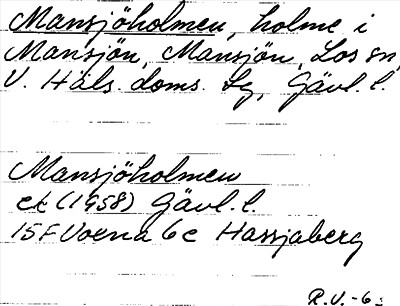 Mansjöholmen, holme i
Mansjön, Mansjön, Los sn,
V. Häls. doms. Lg, Gävl. l.
Mansjöholmen
ek (1958) Gävl. l
15F Voxna 6c Hassjaberg
R.V.-6